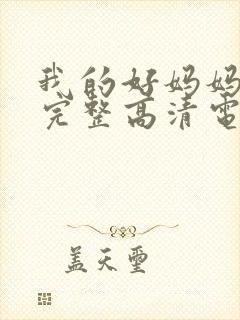 我的好妈妈
完整高清电
盖天玺